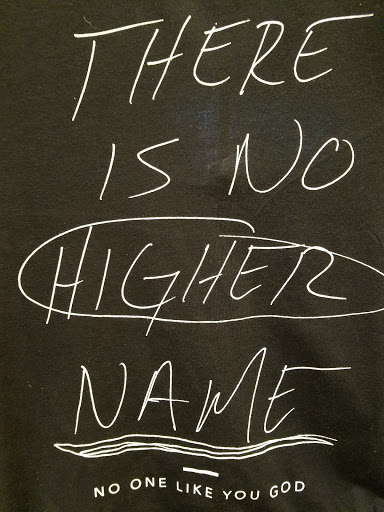 THERE
IS NO
HIGHER
NAME
NO ONE LIKE YOU GOD